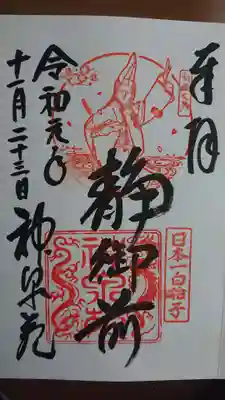 奉拝
日本一白拍子
静御前
令和元年
十一月二十三日 神泉苑